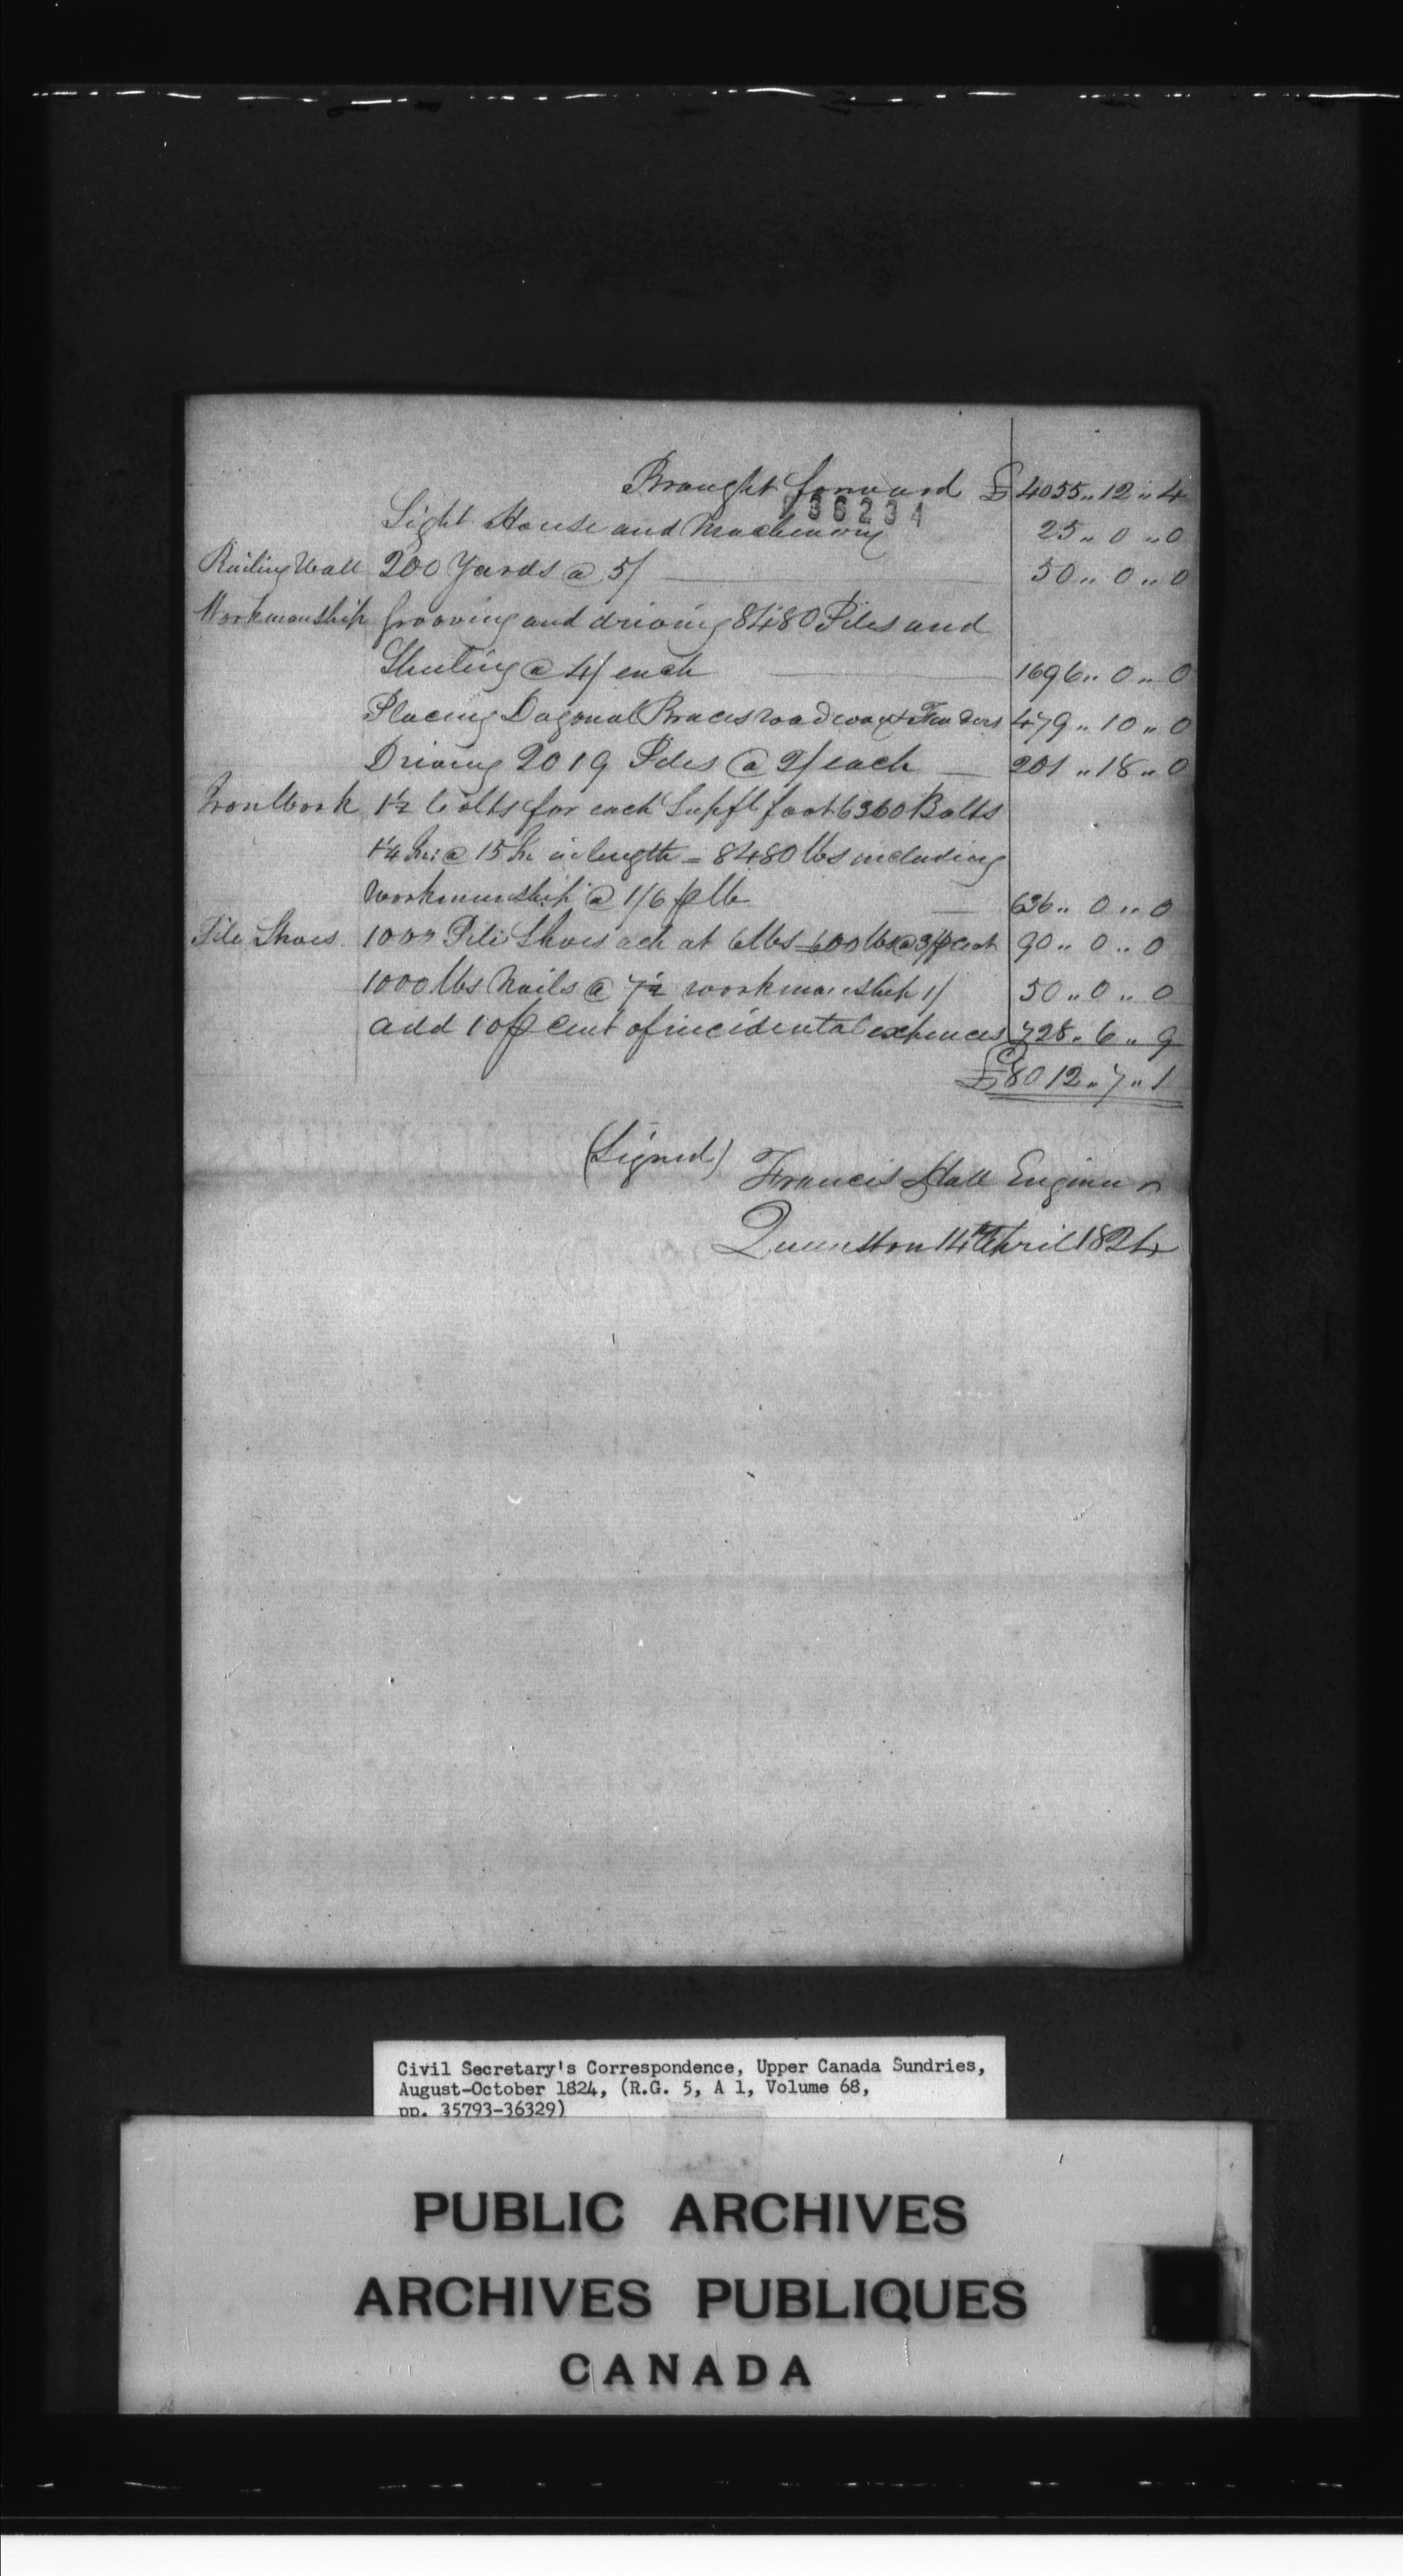 Brought forward £ 4055 „ 12 „ 4
036234
Light House and Machinery 25 „ 0 „ 0
Railing Wall 200 Yards @ 5/ 50 „ 0 „ 0
Workmanship grooving and driving 8480 Piles and
Sheeting @ 4/ each 1696 „ 0 „ 0
Placing Dagonal Braces roadway & Fenders 479 „ 10 „ 0
Driving 2019 Piles @ 2/ each 201 „ 18 „ 0
Iron Work 1½ bolts for each Supfl foot 6360 Bolts
1¼ In: @ 15 In in length = 8480 lbs including
workmanship @ 1/6 p lb 636 „ 0 „ 0
Pile Shoes 100 Pile Shoes ach at 6 lbs = 600 lbs @ 3/ p 90 „ 0 „ 0
1000 lbs Nails @ 7½ workmanship 1/ 50 „ 0 „ 0
add 10 p cent of incidental expences 728 „ 6 „ 9
£ 8012 „ 7 „ 1
(Signed) Francis Hall Engineer
Queenston 14th April 1824
Civil Secretary's Correspondence, Upper Canada Sundries,
August-October 1824, (R.G. 5, A 1, Volume 68,
pp. 35793-36329)
PUBLIC ARCHIVES
ARCHIVES PUBLIQUES
CANADA